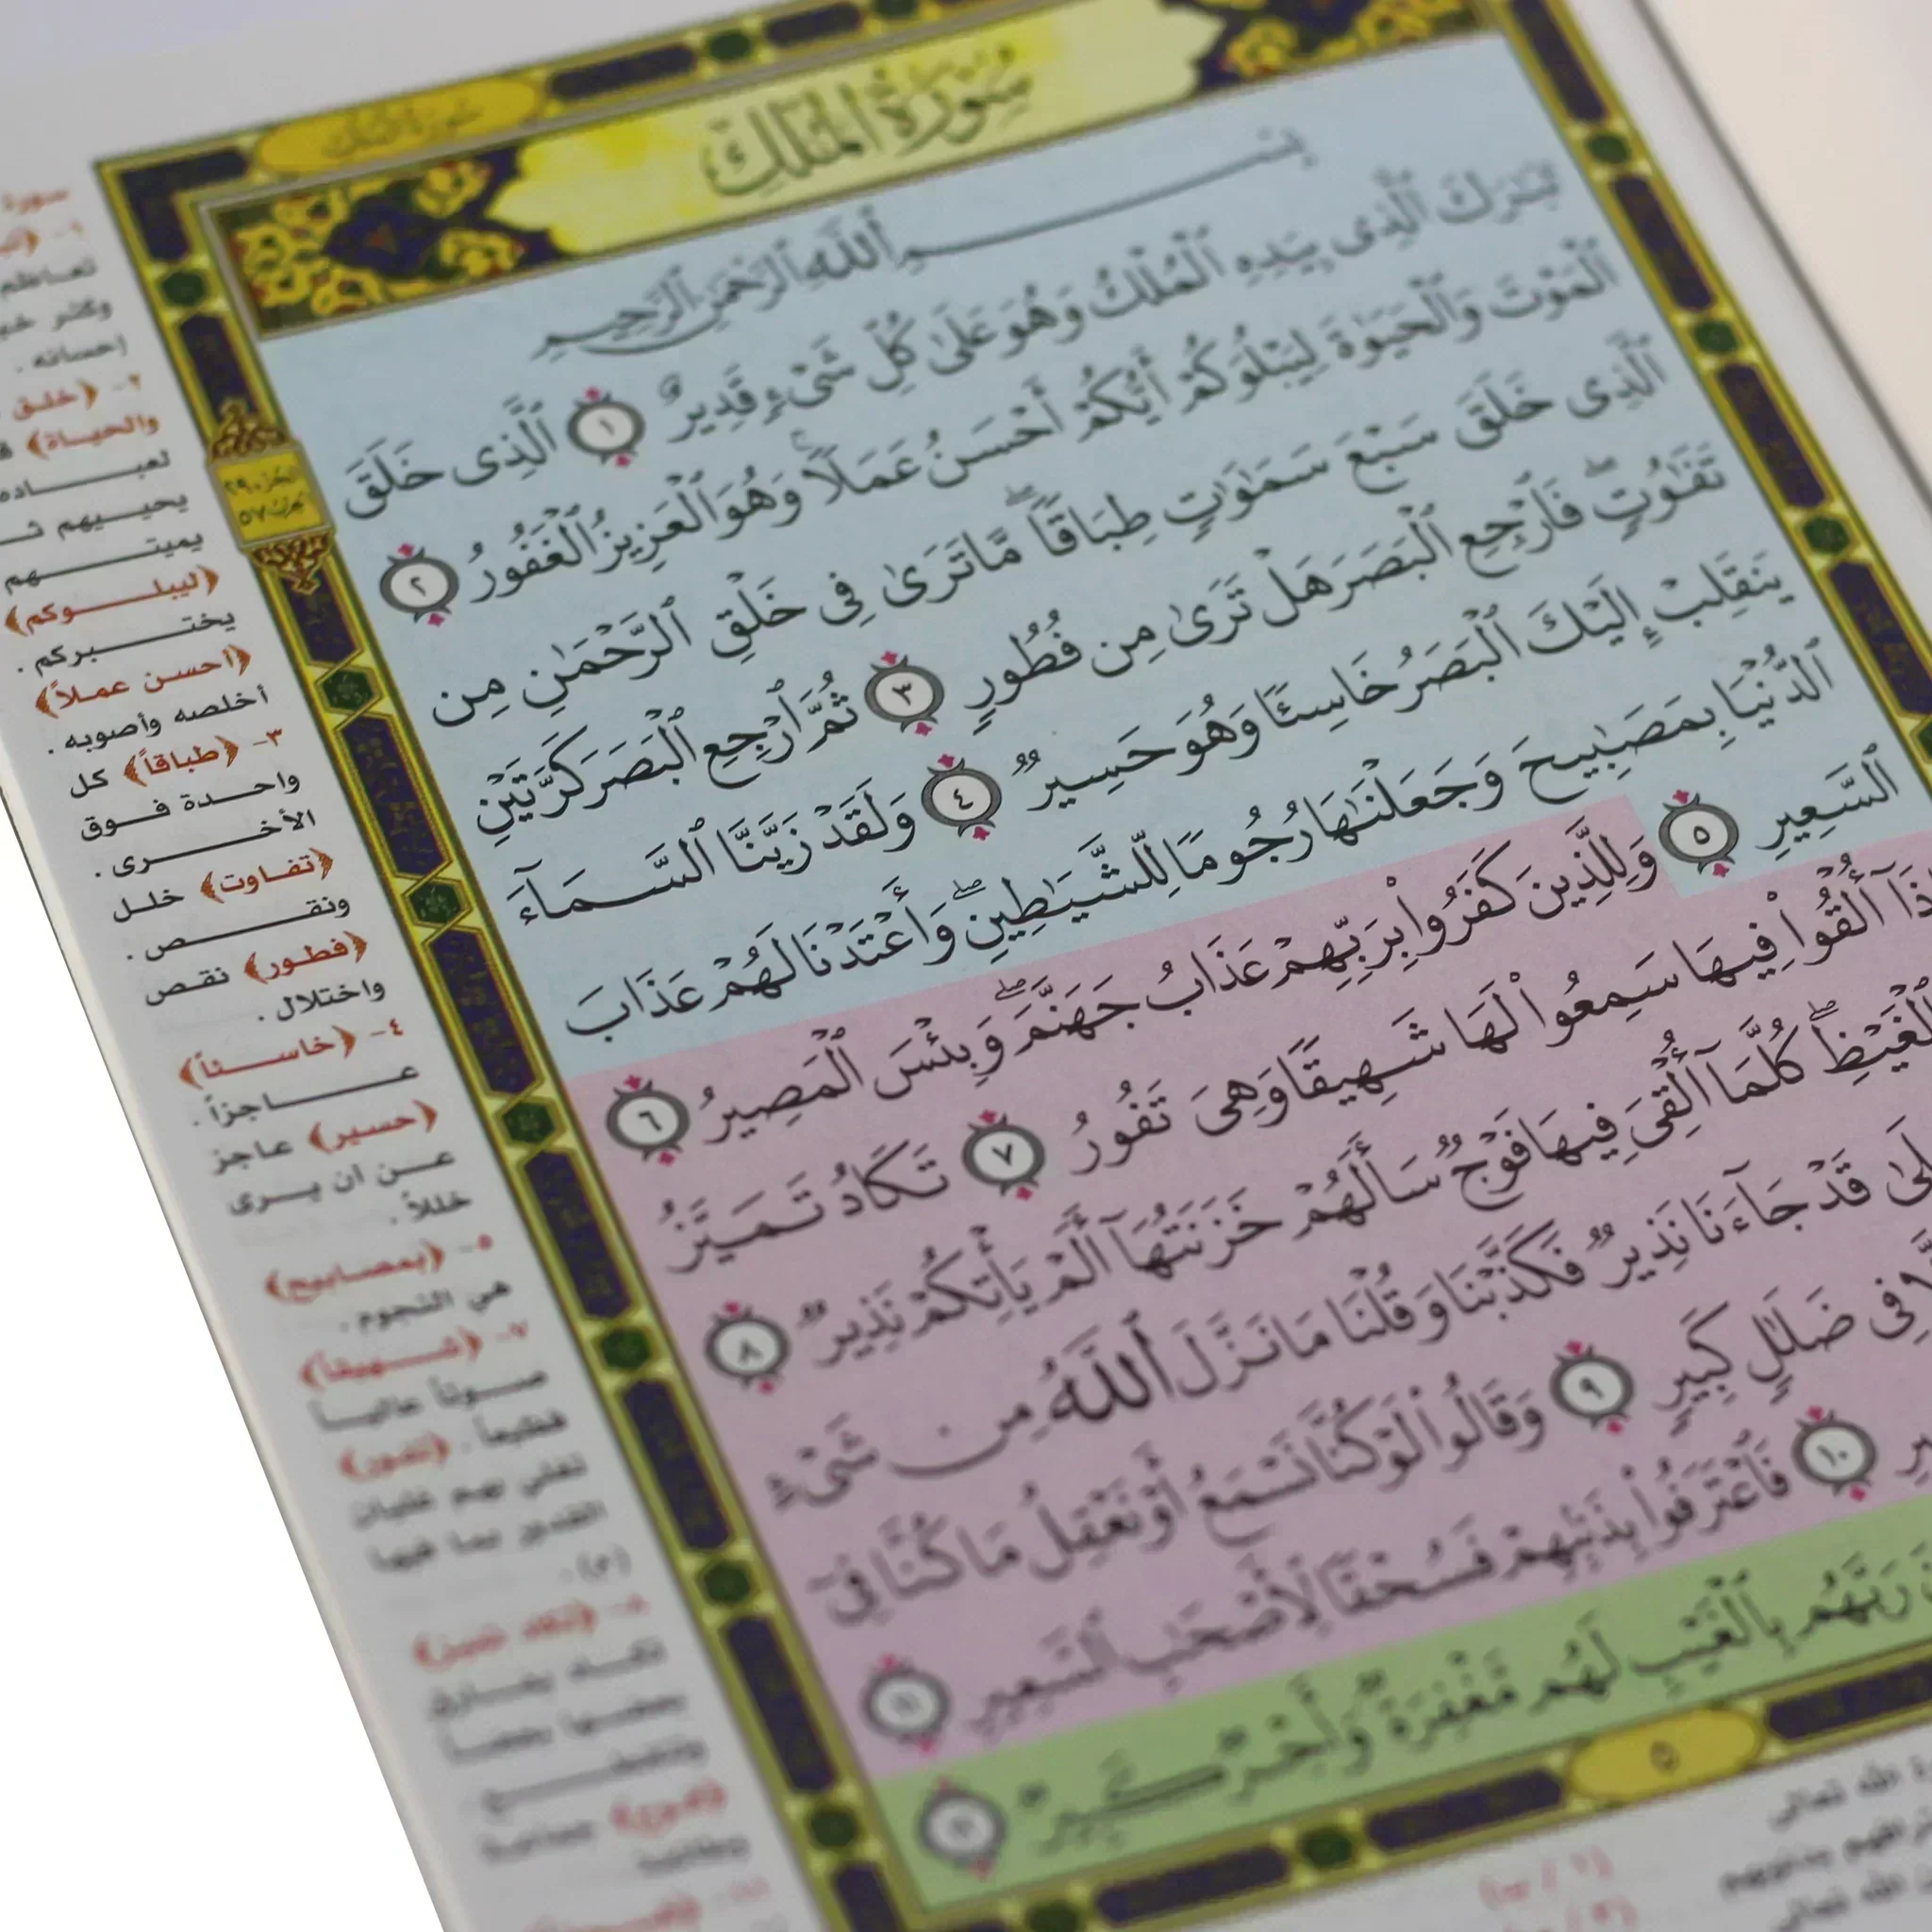 سُورَةُ المُلْكِ
بِسْمِ ٱللَّهِ ٱلرَّحْمَٰنِ ٱلرَّحِيمِ
تَبَٰرَكَ ٱلَّذِى بِيَدِهِ ٱلْمُلْكُ وَهُوَ عَلَىٰ كُلِّ شَىْءٍ قَدِيرٌ ١ ٱلَّذِى خَلَقَ
ٱلْمَوْتَ وَٱلْحَيَوٰةَ لِيَبْلُوَكُمْ أَيُّكُمْ أَحْسَنُ عَمَلًا ۚ وَهُوَ ٱلْعَزِيزُ ٱلْغَفُورُ ٢
ٱلَّذِى خَلَقَ سَبْعَ سَمَٰوَٰتٍ طِبَاقًا ۖ مَّا تَرَىٰ فِى خَلْقِ ٱلرَّحْمَٰنِ مِن
تَفَٰوُتٍ ۖ فَٱرْجِعِ ٱلْبَصَرَ هَلْ تَرَىٰ مِن فُطُورٍ ٣ ثُمَّ ٱرْجِعِ ٱلْبَصَرَ كَرَّتَيْنِ
يَنقَلِبْ إِلَيْكَ ٱلْبَصَرُ خَاسِئًا وَهُوَ حَسِيرٌ ٤ وَلَقَدْ زَيَّنَّا ٱلسَّمَآءَ
ٱلدُّنْيَا بِمَصَٰبِيحَ وَجَعَلْنَٰهَا رُجُومًا لِّلشَّيَٰطِينِ ۖ وَأَعْتَدْنَا لَهُمْ عَذَابَ
ٱلسَّعِيرِ ٥ وَلِلَّذِينَ كَفَرُوا۟ بِرَبِّهِمْ عَذَابُ جَهَنَّمَ ۖ وَبِئْسَ ٱلْمَصِيرُ ٦
أُلْقُوا۟ فِيهَا سَمِعُوا۟ لَهَا شَهِيقًا وَهِىَ تَفُورُ ٧ تَكَادُ تَمَيَّزُ
ٱلْغَيْظِ ۖ كُلَّمَآ أُلْقِىَ فِيهَا فَوْجٌ سَأَلَهُمْ خَزَنَتُهَآ أَلَمْ يَأْتِكُمْ نَذِيرٌ ٨
قَدْ جَآءَنَا نَذِيرٌ فَكَذَّبْنَا وَقُلْنَا مَا نَزَّلَ ٱللَّهُ مِن شَىْءٍ
فِى ضَلَٰلٍ كَبِيرٍ ٩ وَقَالُوا۟ لَوْ كُنَّا نَسْمَعُ أَوْ نَعْقِلُ مَا كُنَّا فِىٓ
١٠ فَٱعْتَرَفُوا۟ بِذَنۢبِهِمْ فَسُحْقًا لِّأَصْحَٰبِ ٱلسَّعِيرِ ١١
رَبَّهُم بِٱلْغَيْبِ لَهُم مَّغْفِرَةٌ وَأَجْرٌ كَبِيرٌ ١٢
سورة
تعاظم
وكثر
إحسانه .
٢- ﴿خلق
والحياة﴾
لعباده
يحييهم
يميتهم
﴿ليبلوكم﴾
يختبركم .
﴿أحسن عملاً﴾
أخلصه وأصوبه .
٣- ﴿طباقاً﴾ كل
واحدة فوق
الأخرى .
﴿تفاوت﴾ خلل
ونقص .
﴿فطور﴾ نقص
واختلال .
٤- ﴿خاسئاً﴾
عاجزاً .
﴿حسير﴾ عاجز
عن أن يرى
خللاً .
٥- ﴿بمصابيح﴾
هي النجوم .
٧- ﴿شهيقاً﴾
صوتاً عالياً
فظيعاً . ﴿تفور﴾
تغلي بهم غليان
القدير بما فيها
(م) .
الله تعالى